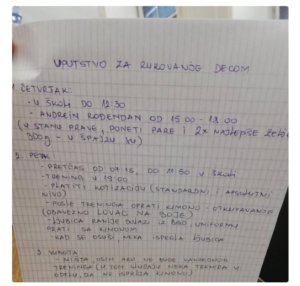 UPUTSTVO ZA RUKOVANJE DECOM
1. ČETVRTAK:
- U ŠKOLI DO 12:30
- ANDREIN ROĐENDAN OD 15:00 - 18:00
(U STANU PRAVE, PONETI PARE I 2x NAJLEPŠE ŽELJE
300g - U ŠPAJZU SU)
2. PETAK
- PRETČAS OD 07:15, DO 11:30 U ŠKOLI
- TRENING U 19:00
- PLATITI KOTIZACIJU (STANDARDNI I APSOLUTNI
NIVO)
- POSLE TRENINGA OPRATI KIMONO - OTKUVAVANJE
(OBAVEZNO LOVAC NA BOJE)
- LJUBICA RANIJE DOLAZI IZ BGD, UNIFORMU
PRATI SA KIMONOM
- KAD SE OSUŠI NEKA ISPEGLA LJUBICA
3. SUBOTA
- NIŠTA, OSIM AKO NE BUDE VANREDNOG
TRENINGA (U TOM SLUČAJU NEKA TRENIRA U
ODELU, DA NE ISPRLJA KIMONO)